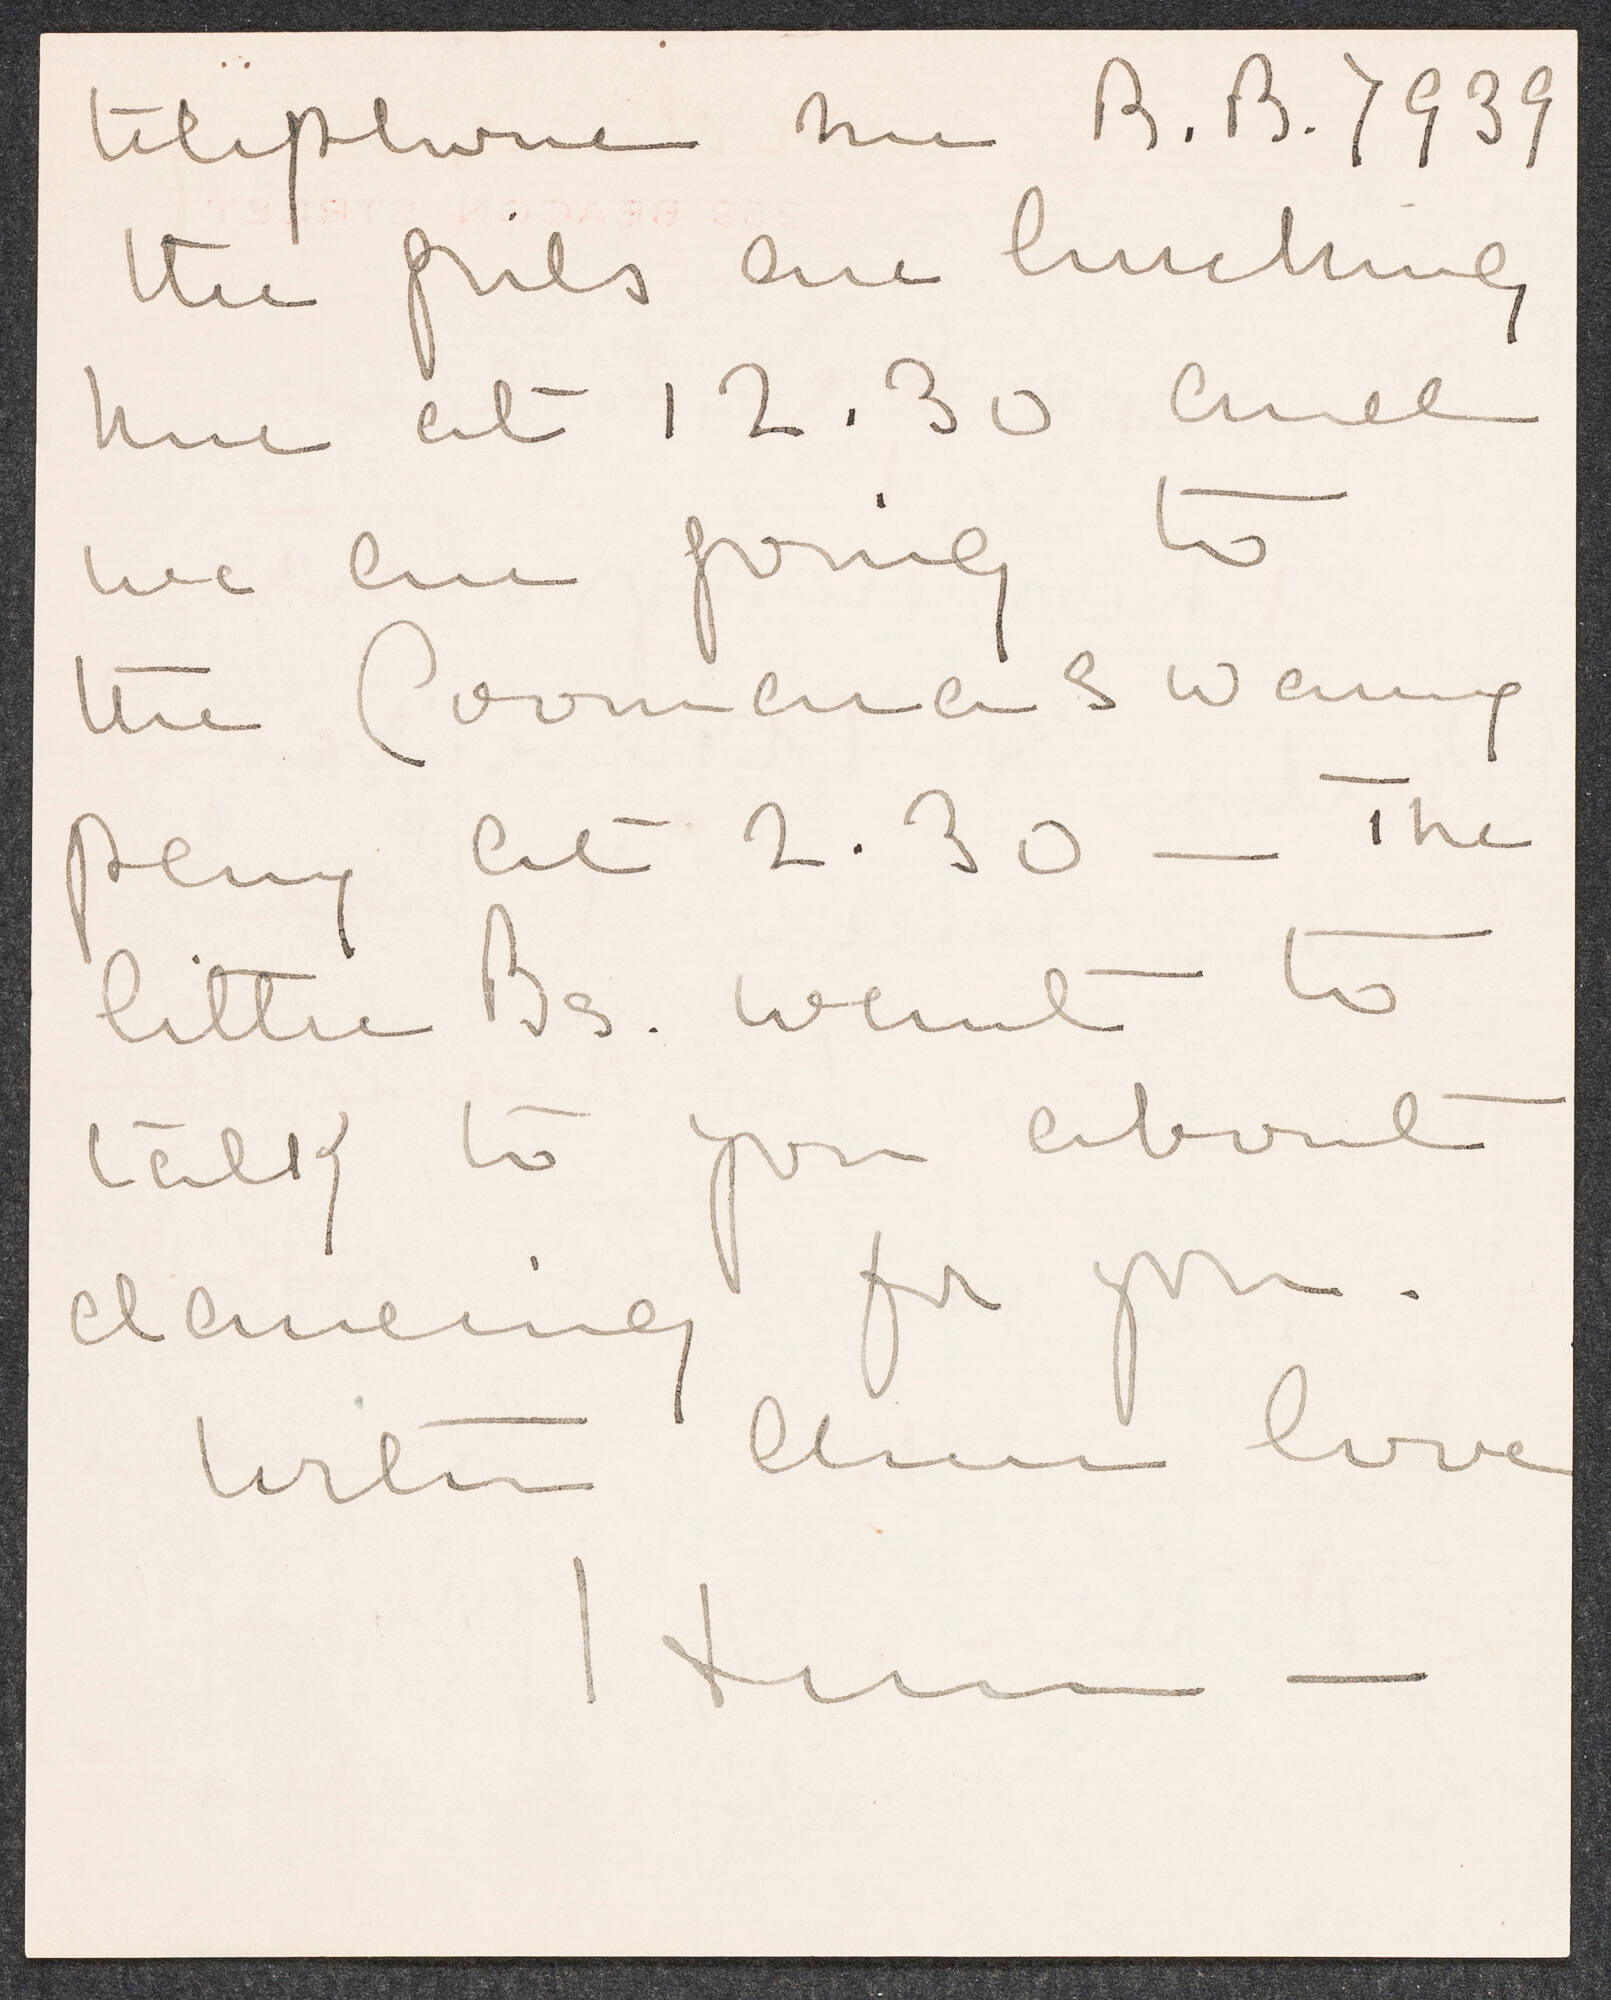 telephone me B.B. 7939
the girls are lunching
here at 12.30 and
we are going to
the Coomaraswamy
party at 2.30 — The
little Bs. want to
talk to you about
dancing for you.
with dear love